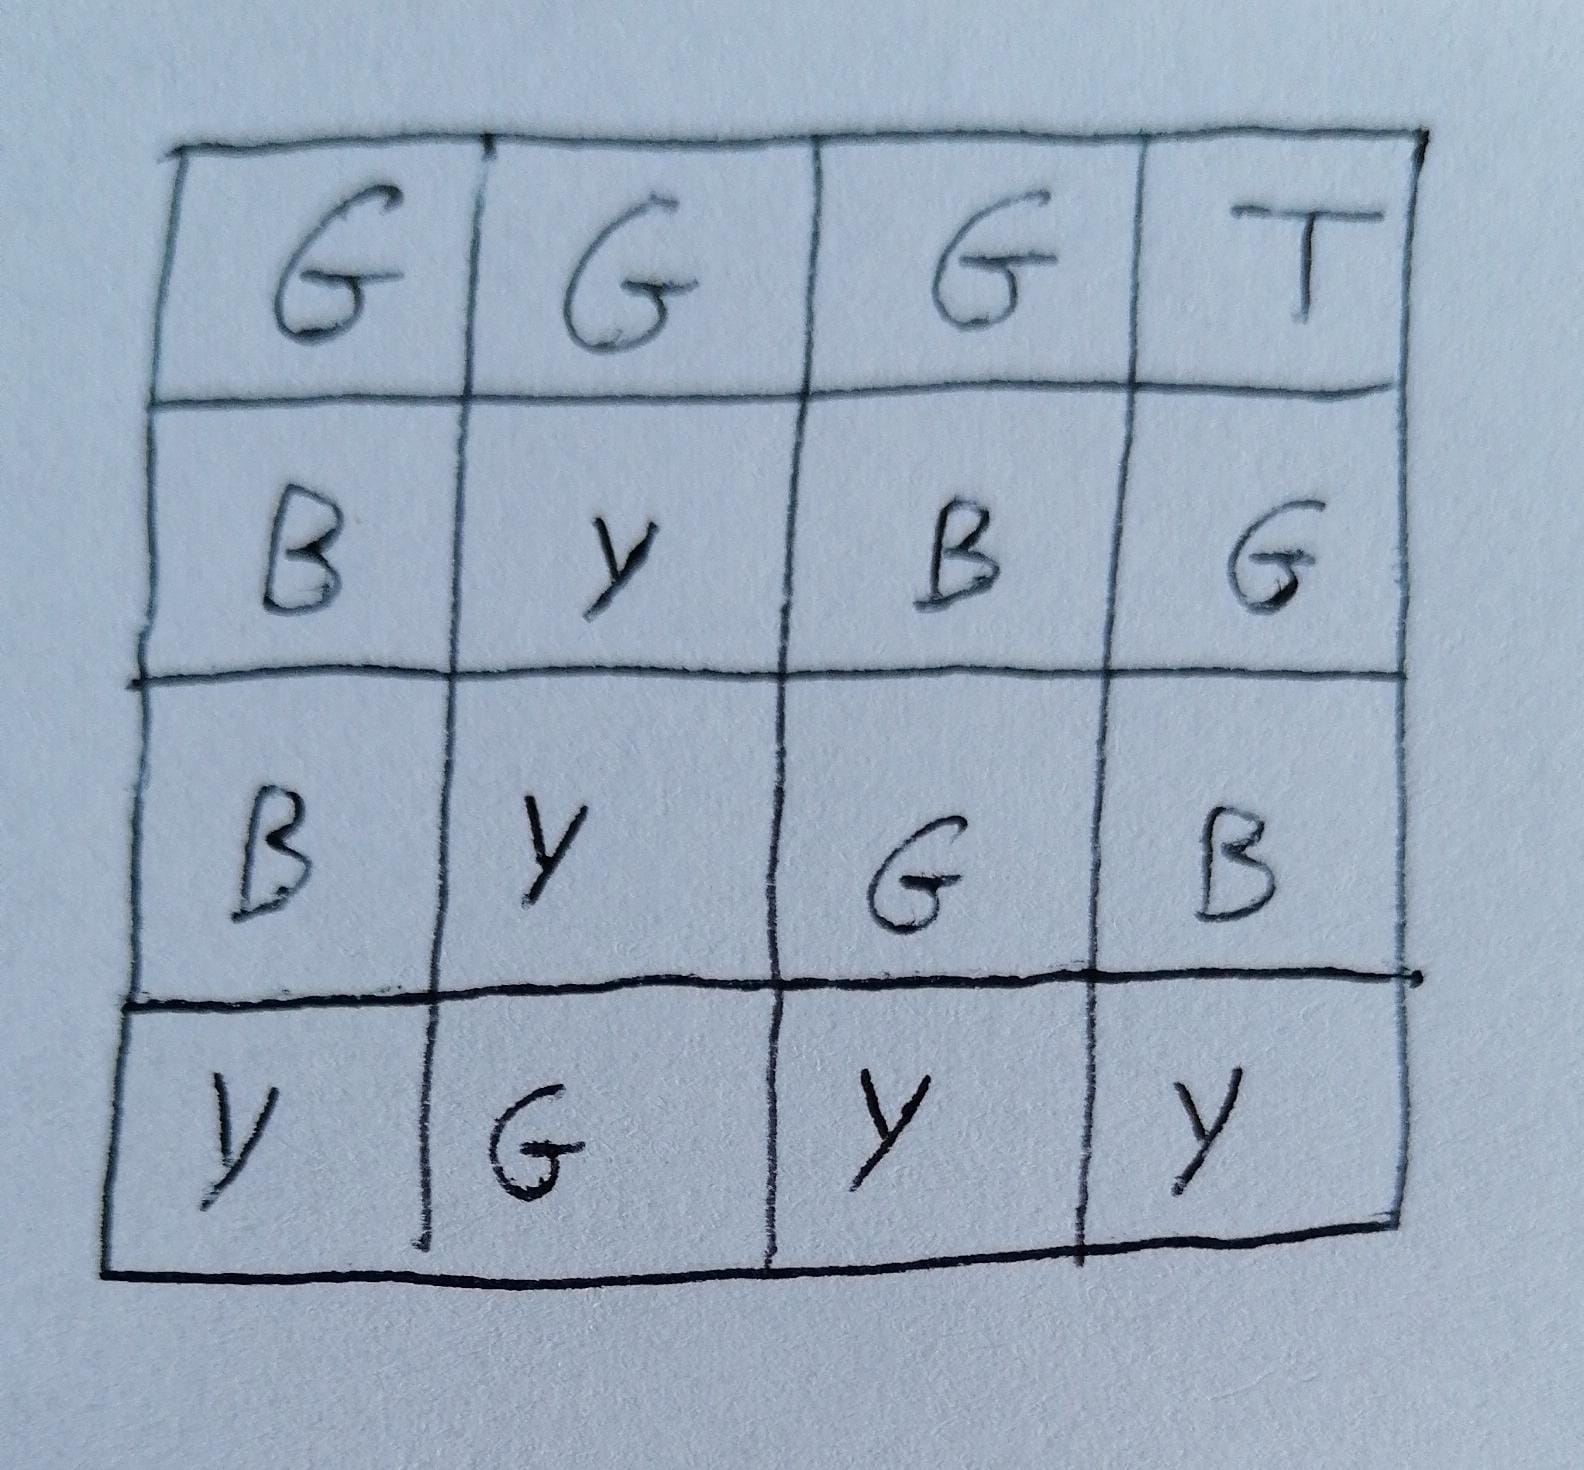 G G G T
B Y B G
B Y G B
Y G Y Y